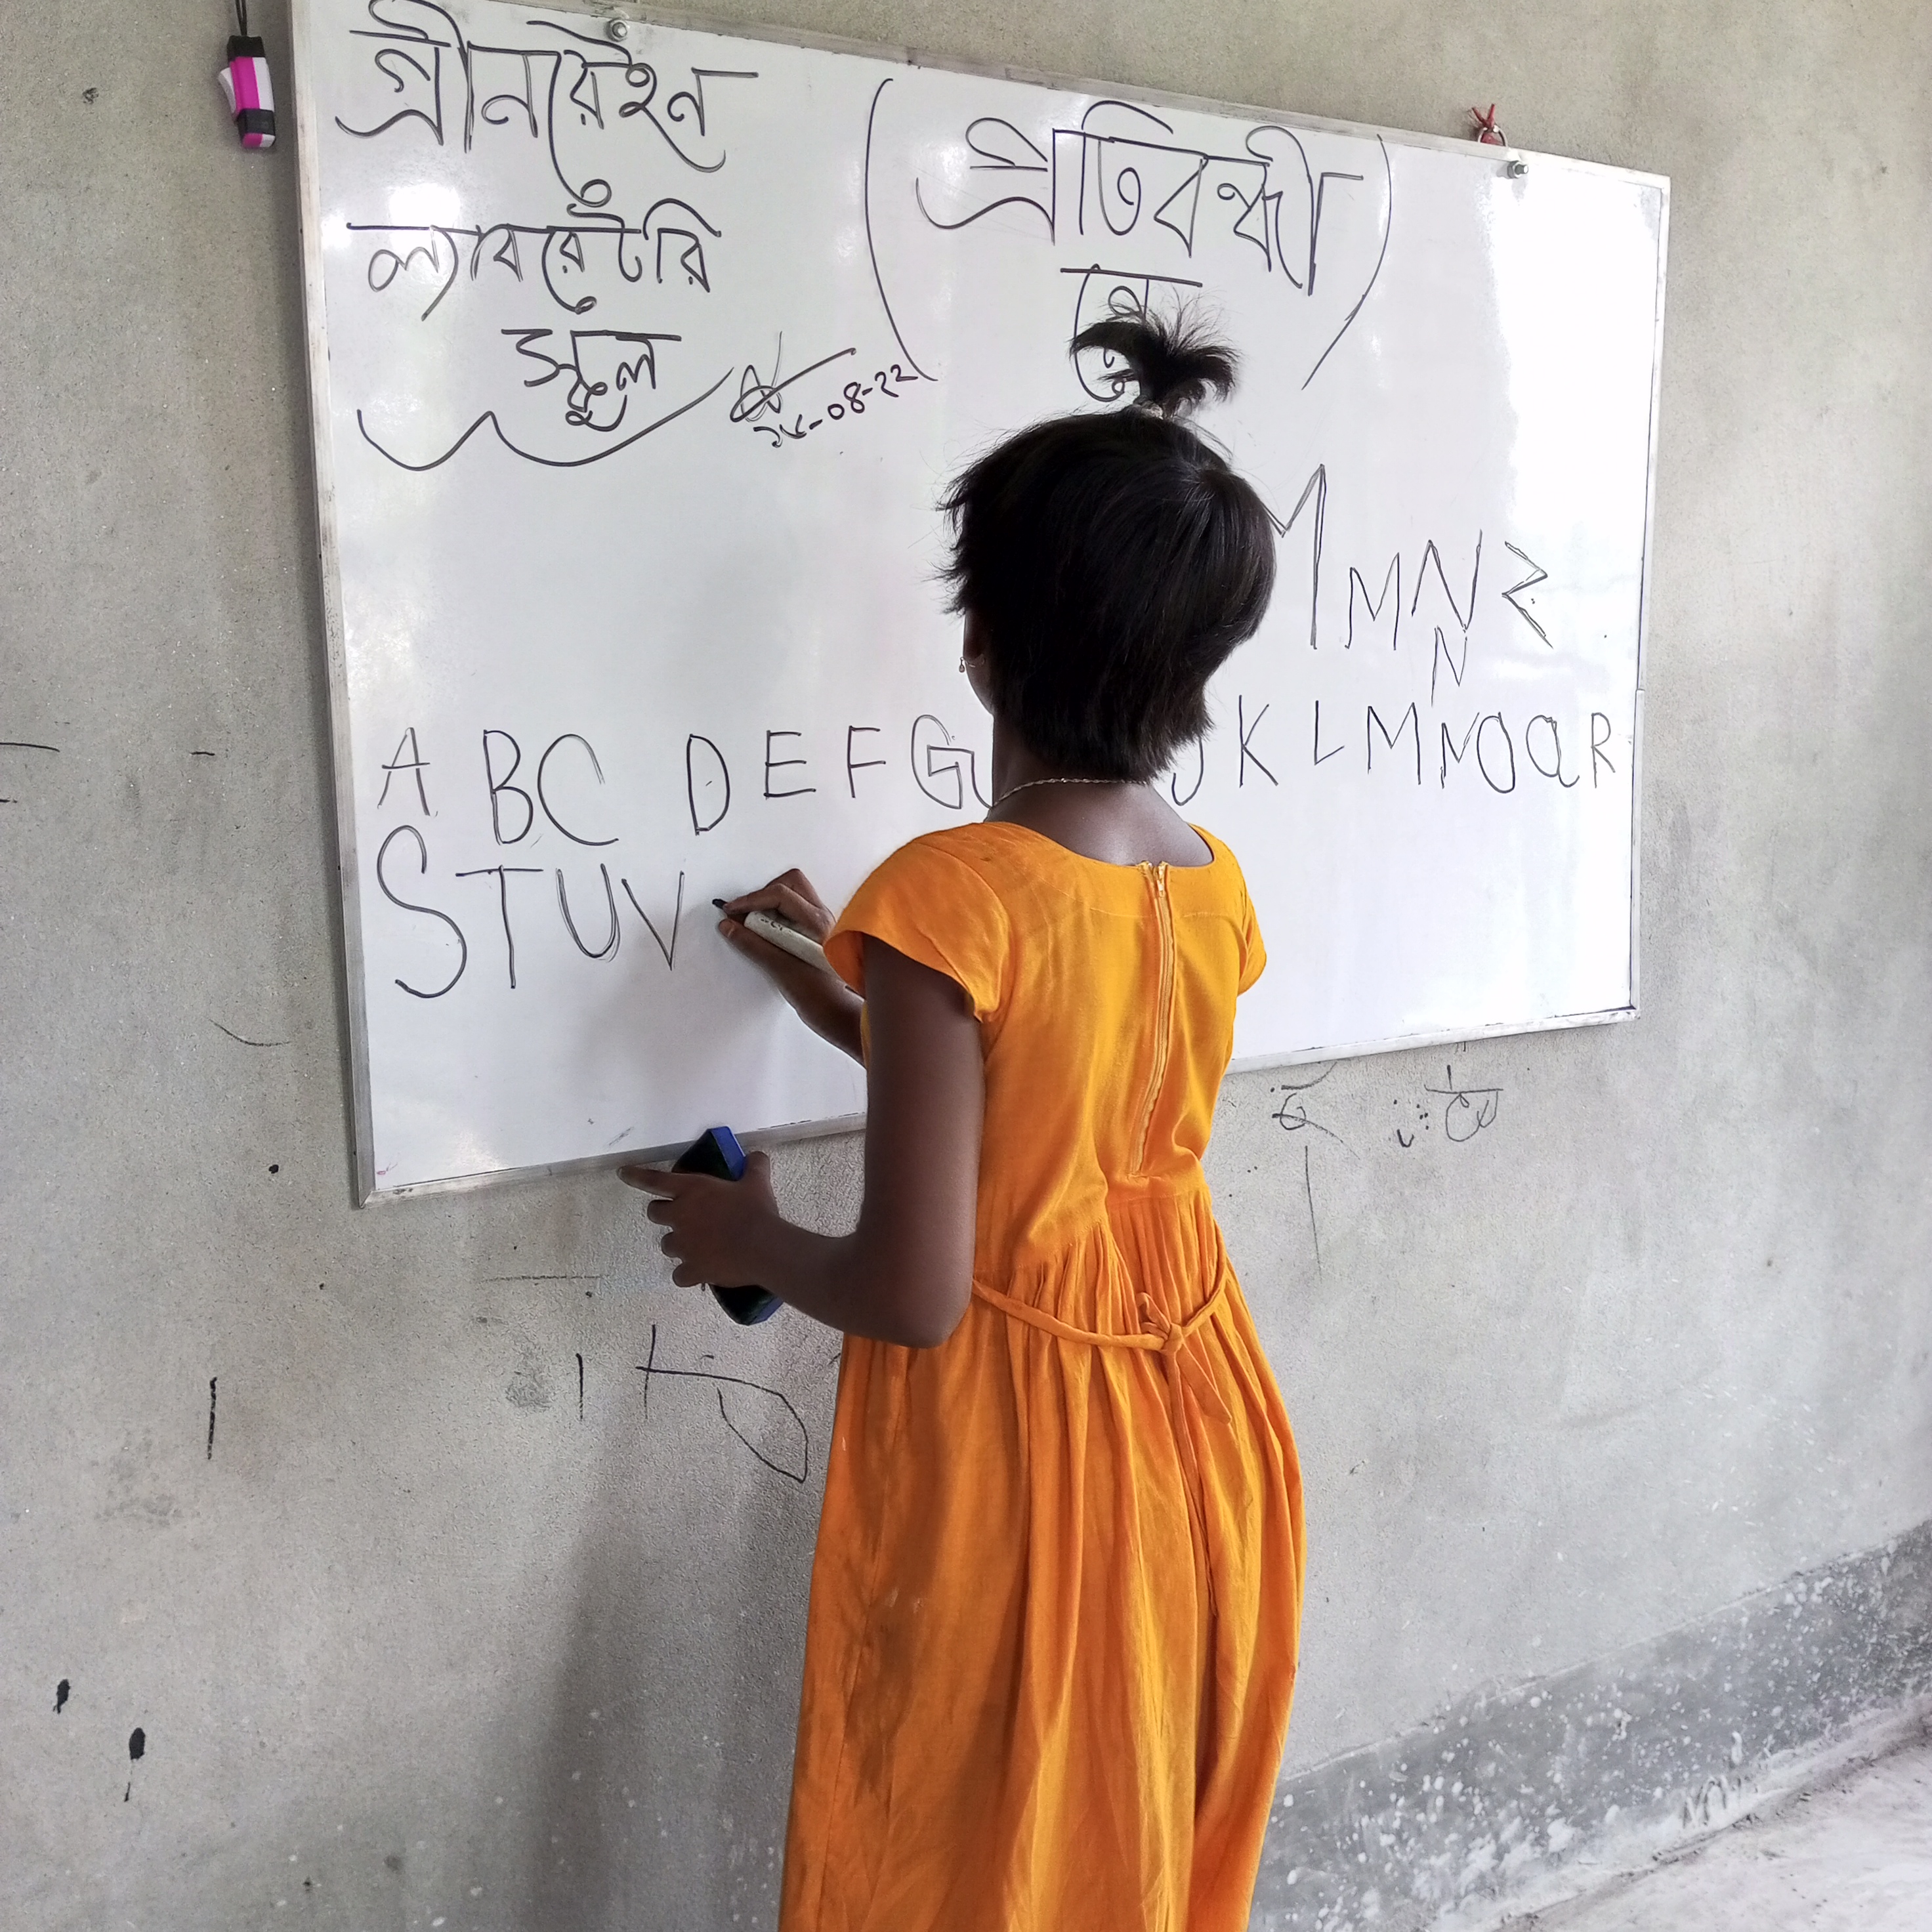 গ্রীনরেইন
ল্যাবরেটরি
স্কুল
(প্রতিবন্ধী)
M M N
N
A B C D E F G J K L M N O Q R
S T U V